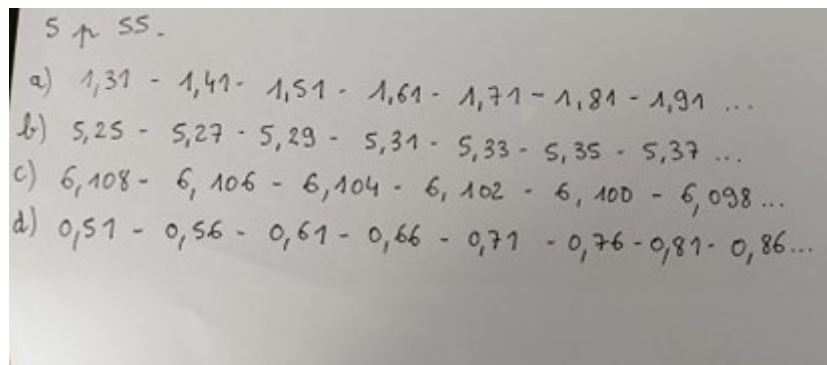 5 p 55.
a) 1,31 - 1,41 - 1,51 - 1,61 - 1,71 - 1,81 - 1,91 ...
b) 5,25 - 5,27 - 5,29 - 5,31 - 5,33 - 5,35 - 5,37 ...
c) 6,108 - 6,106 - 6,104 - 6,102 - 6,100 - 6,098 ...
d) 0,51 - 0,56 - 0,61 - 0,66 - 0,71 - 0,76 - 0,81 - 0,86 ...